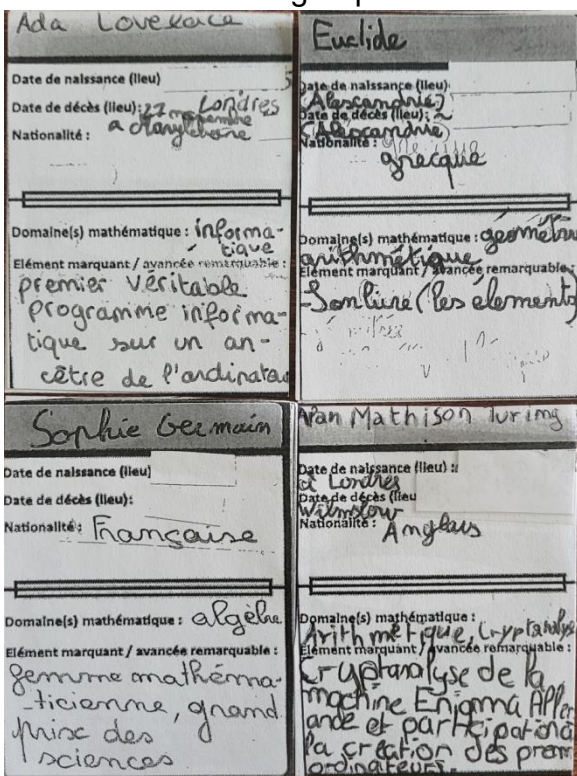 Ada Lovelace
Date de naissance (lieu)
Date de décès (lieu): 27 novembre Londres
Nationalité : à Marylebone
Domaine(s) mathématique : informa-
tique
Elément marquant / avancée remarquable :
premier véritable
programme informa-
tique sur un an-
cêtre de l'ordinateu
Euclide
Date de naissance (lieu)
(Alescandrie)
Date de décès (lieu):
(Alescandrie)
Nationalité :
grecque
Domaine(s) mathématique : géométrie
arithmétique
Elément marquant / avancée remarquable :
-Son livre (les élements)
Sophie Germain
Date de naissance (lieu)
Date de décès (lieu):
Nationalité : Française
Domaine(s) mathématique : algèbre
Elément marquant / avancée remarquable :
femme mathéma-
-ticienne, grand
prix des
sciences
Alan Mathison Turing
Date de naissance (lieu) :
à Londres
Date de décès (lieu
Wilmslow
Nationalité : Anglais
Domaine(s) mathématique :
Arithmétique, Cryptanalyse
Elément marquant / avancée remarquable :
Cryptanalyse de la
machine Enigma Allem
ande et participation à
la création des prem
ordinateurs.